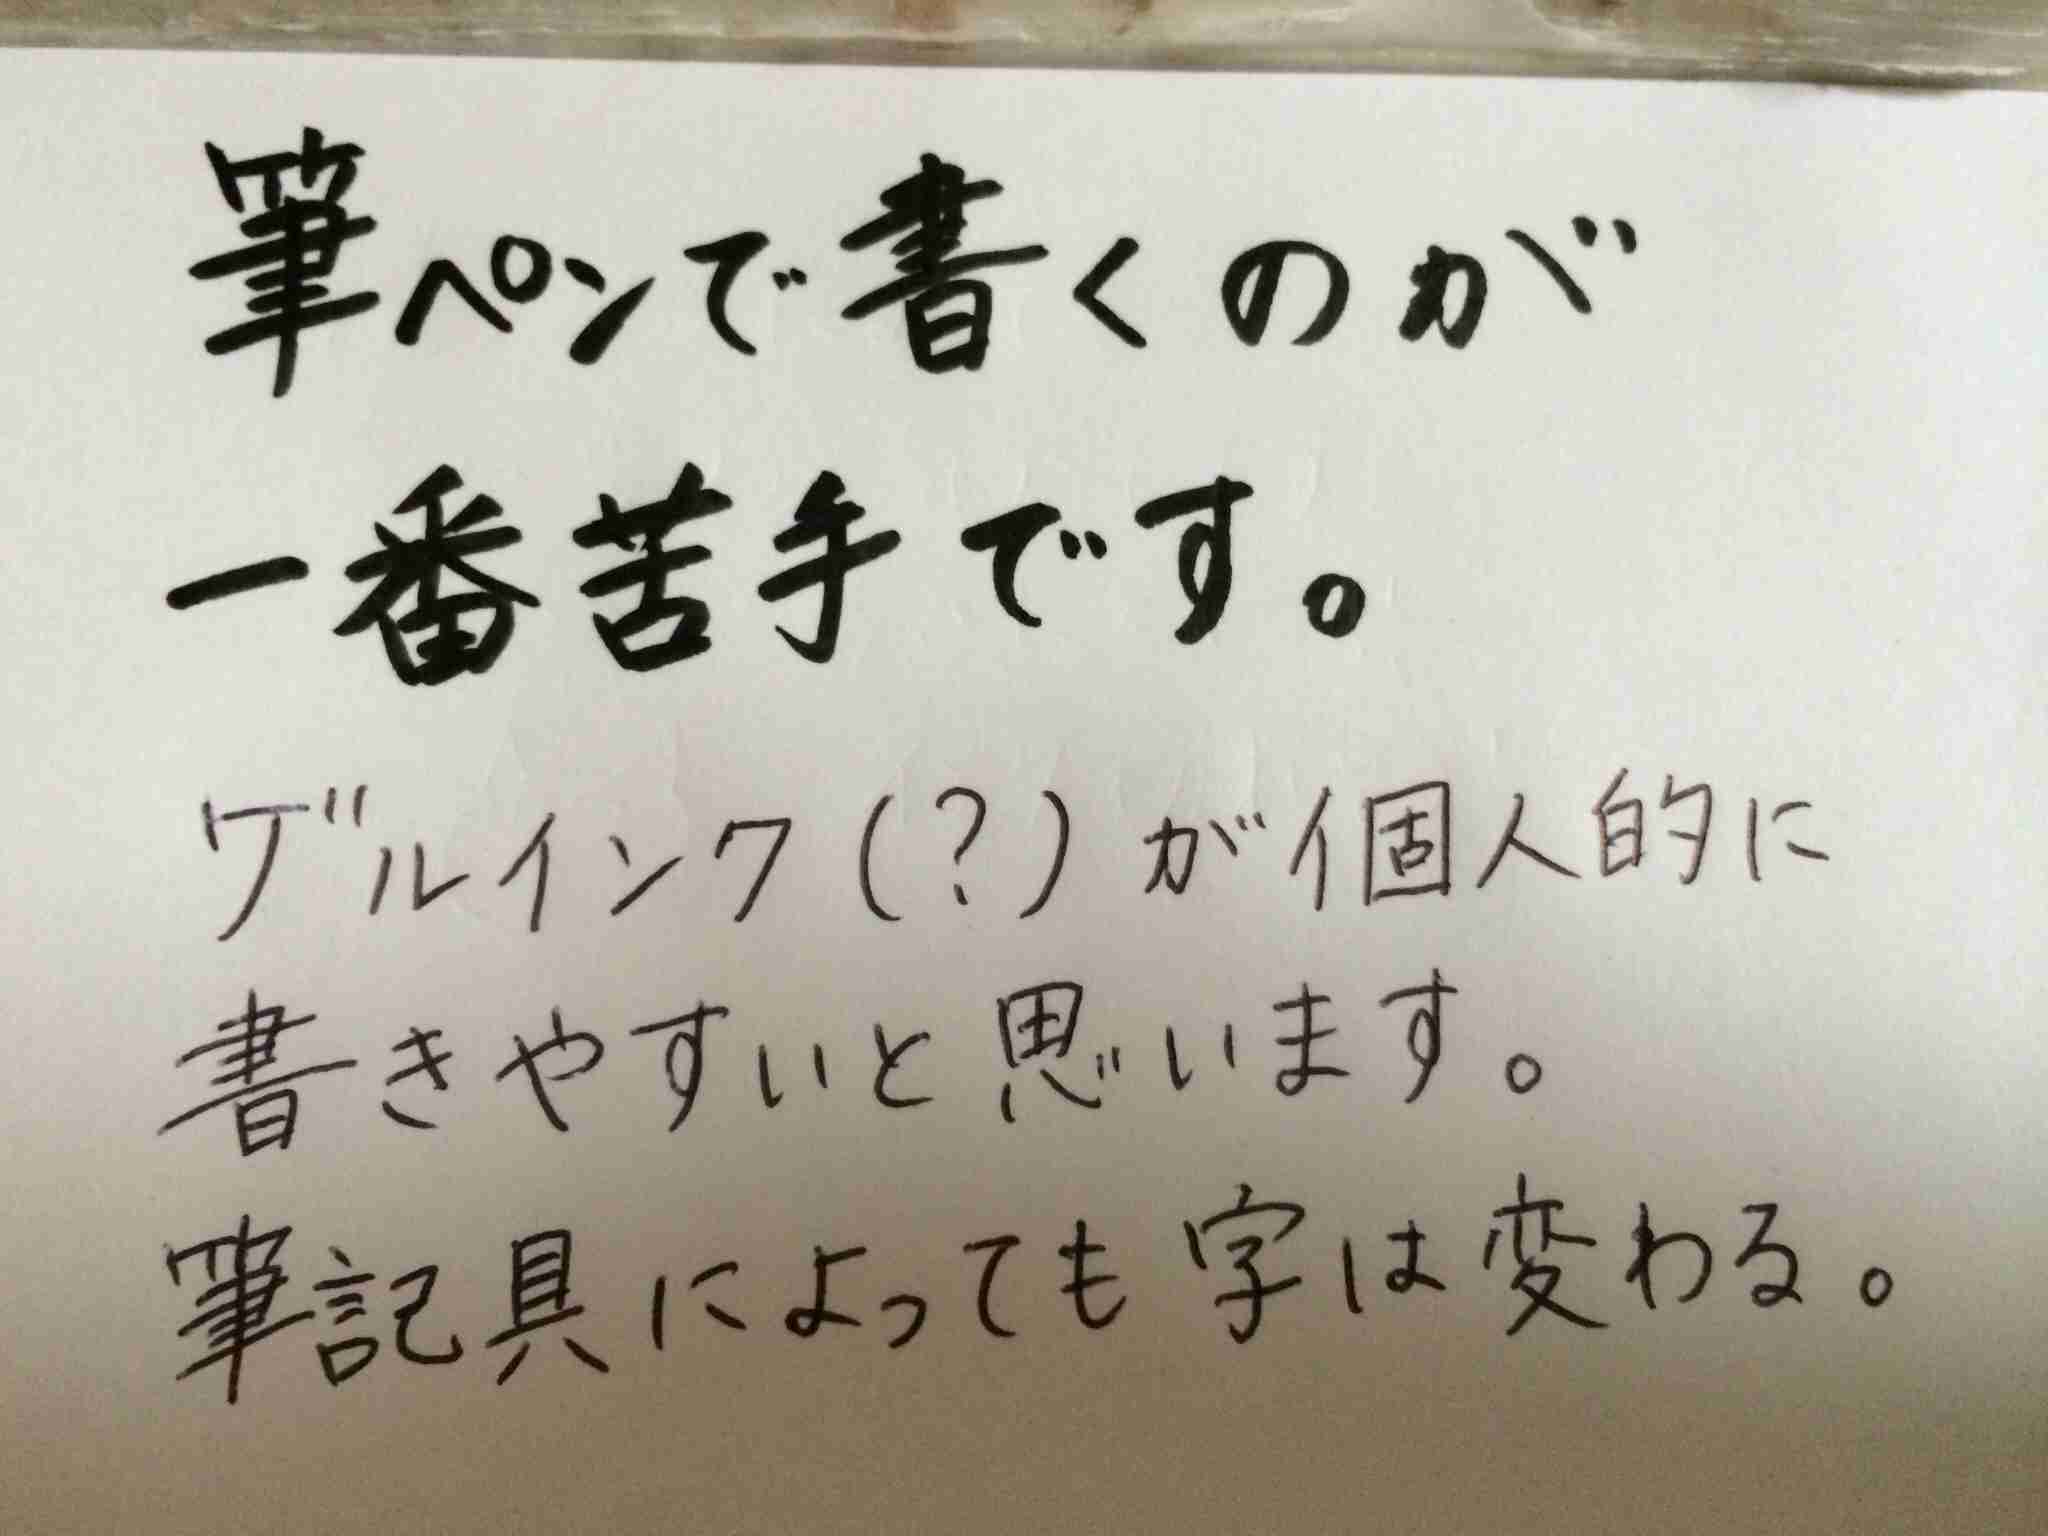 筆ペンで書くのが
一番苦手です。
ゲルインク(?)が個人的に
書きやすいと思います。
筆記具によっても字は変わる。